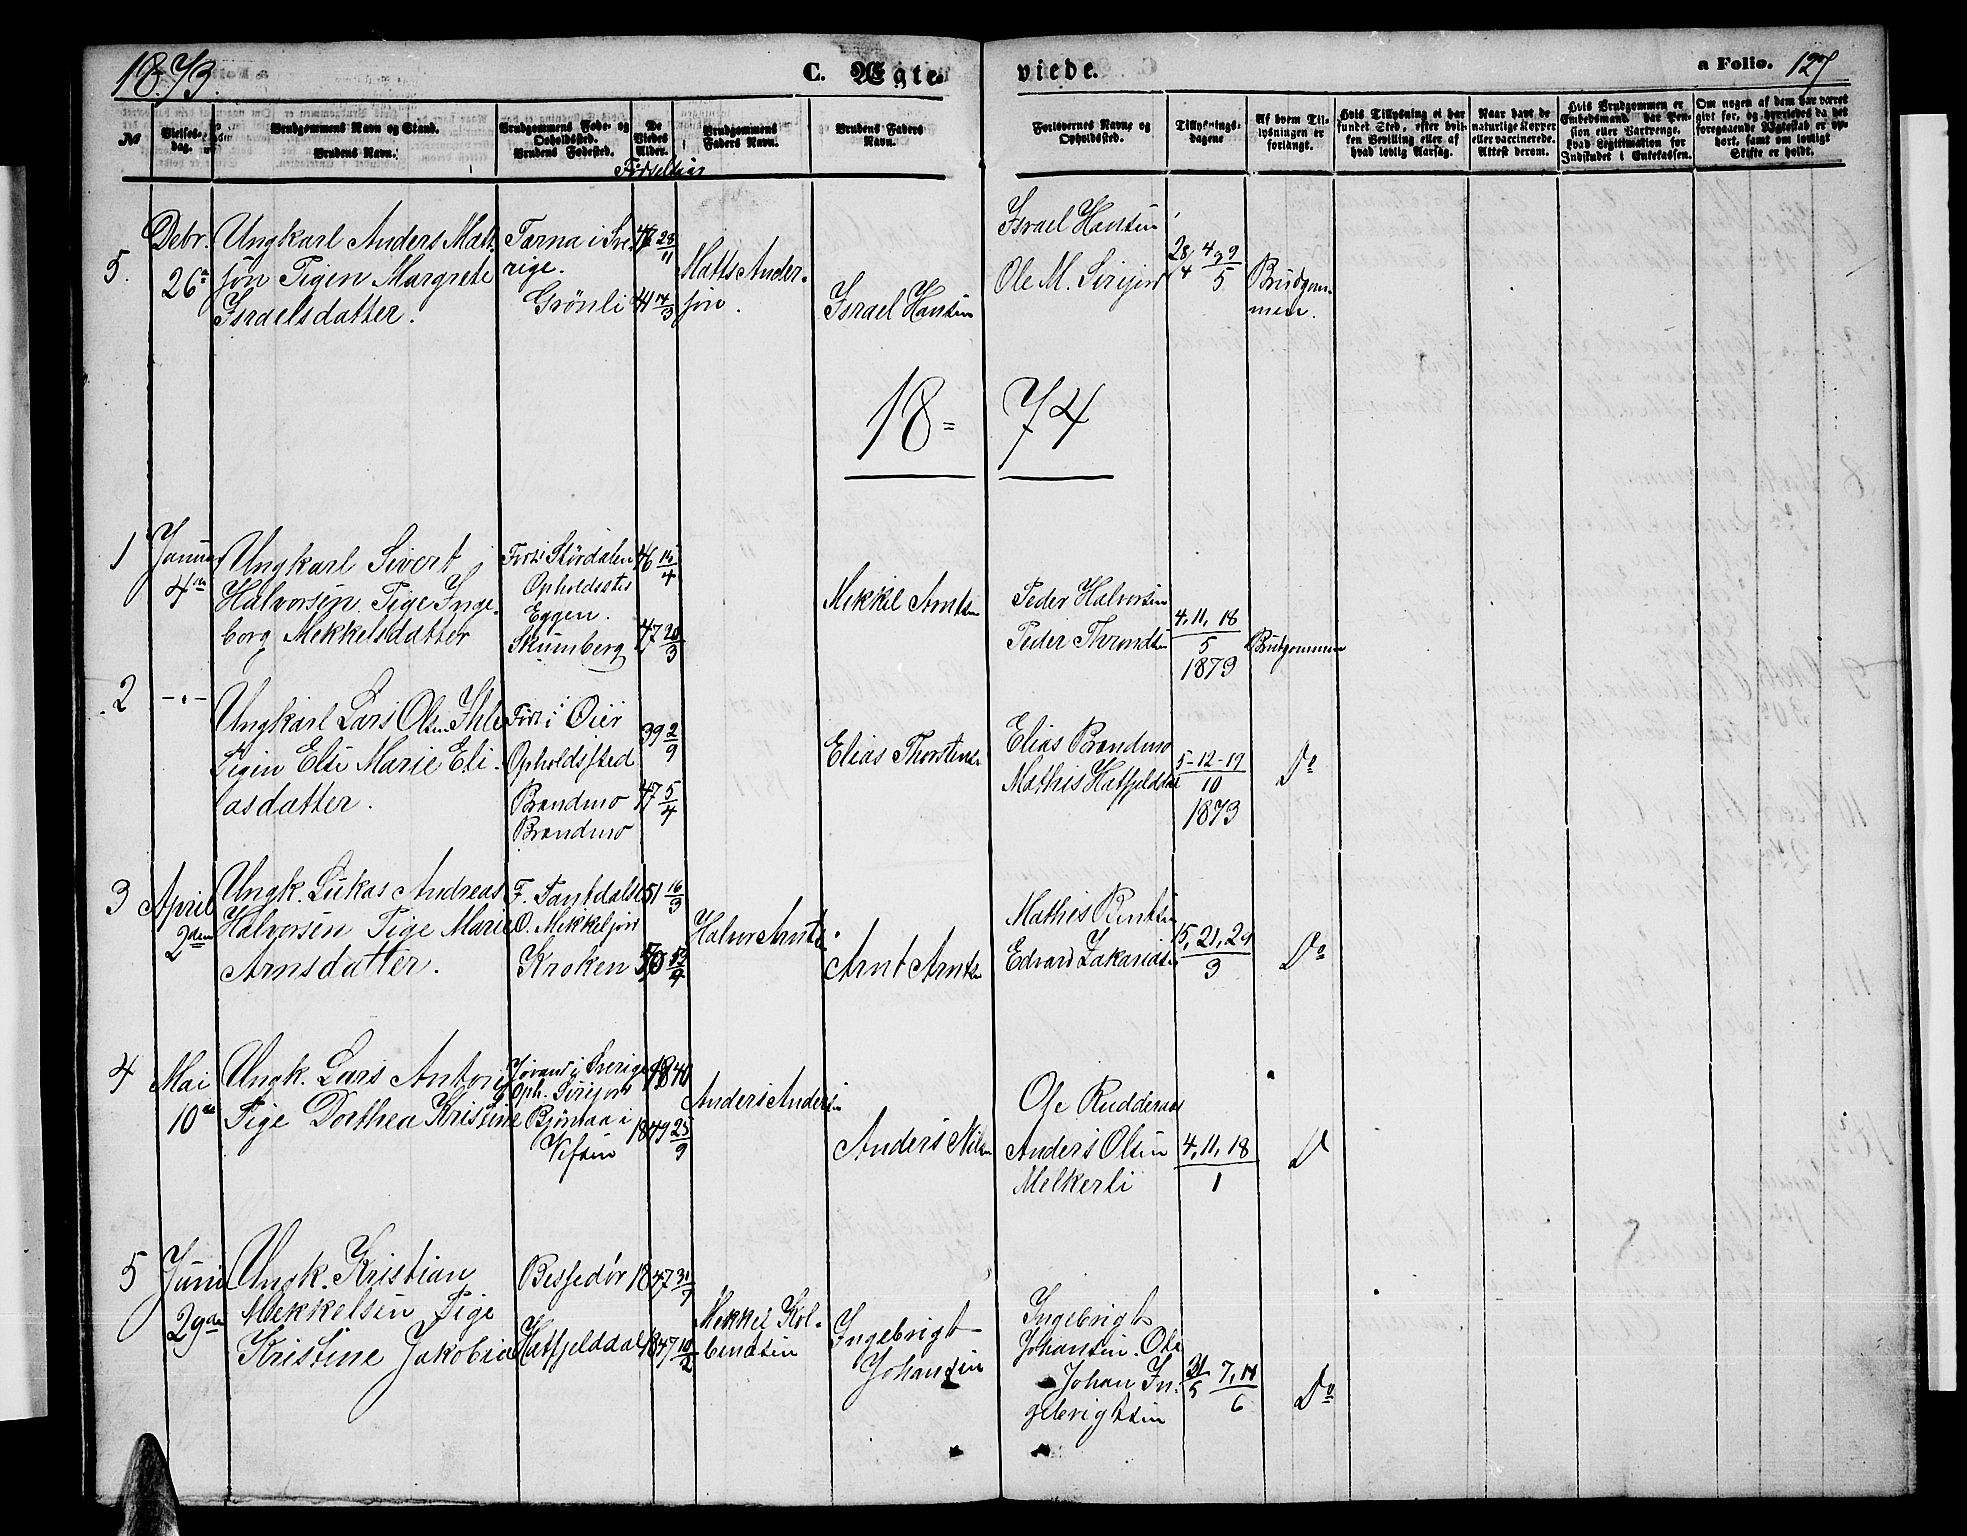 1873.
C. Ægte-
viede.
a Folio. 127
№
Vielses-
dag.
Brudgommens Navn og Stand.
Brudens Navn.
Brudgommens Føde- og
Opholdssted.
Brudens Fødested.
De
Viedes
Alder.
Fødselsaar
Brudgommens
Faders Navn.
Brudens Faders
Navn.
Forlovernes Navne og
Opholdssted.
Tillysnings-
dagene
Af hvem Til-
lysningen er
forlangt.
Hvis Tillysning ei har
fundet Sted, efter hvil-
ken Bevilling eller af
hvad lovlig Aarsag.
Naar havt de
naturlige Kopper
eller vaccinerede.
Attest derom.
Hvis Brudgommen er
Embedsmand, har Pen-
sion eller Vartpenge.
hvad Legitimation for
Indskudet i Enkekassen.
Om nogen af dem har været
gift før, og hvorledes da det
foregaaende Ægteskab er op-
hørt, samt om lovligt
Skifte er holdt.
5.
Debr.
26de
Ungkarl Anders Matt-
søn Pigen Margrete
Israelsdatter.
Tärna i Sve-
rige.
Grönli
28/11
44 14/3
Matts Ander-
søn.
Israel Hansen
Israel Hansen
Ole M. Sørijord
28/4 4, 9/5
Brudgom-
men.
18=74
1
Januar
4de
Ungkarl Sivert
Halvorsen. Pige Inge-
borg Mekkelsdatter
Föds i Stördalen
Opholdssted
Eggen.
Skumberg
46
47 20/3
Mekkel Arntsen
Peder Halvorsen
Peder Throndsen
4, 11, 18
5
1873
Brudgommen
2
-"-
Ungkarl Lars Olsen Ihle
Pigen Else Marie Eli-
asdatter.
Föds i Öier
Opholdssted
Brandmo
Brandmo
39 2/9
47 5/4
Elias Thorstens
Elias Brandmo
Mathis Hatfjelddal
5-12-19
10
1873
Do
3
April
2den
Ungk. Lukas Andreas
Halvorsen Pige Marie
Arnsdatter.
F.
O. Mekkeljord
Kroken
51 16/3
50
Halvor Arntsen
Arnt Arntsen
Mathis Bentsen
Edvard Zakariasen
15, 21, 29
3
Do
4
Mai
10de
Ungk. Lars Anton
Pige Dorthea Kristine
i Sverige
Oph. Sörijord
Björnaa i
Vefsen
1840
1849 25/9
Anders Andersen
Anders Nilsen
Ole Rudderaas
Anders Olsen
Melkerli
4, 11, 18
1
Do
5
Juni
29de
Ungk. Kristian
Mekkelsen Pige
Kristine Jakobia
Bessedør
Hatfjelddal
1847 31/7
1847 10/2
Mekkel Kol-
bendsen
Ingebrigt
Johansen
Ingebrigt
Johansen. Ole
Johan In-
gebrigtsen
31/5 7, 14
6
Do